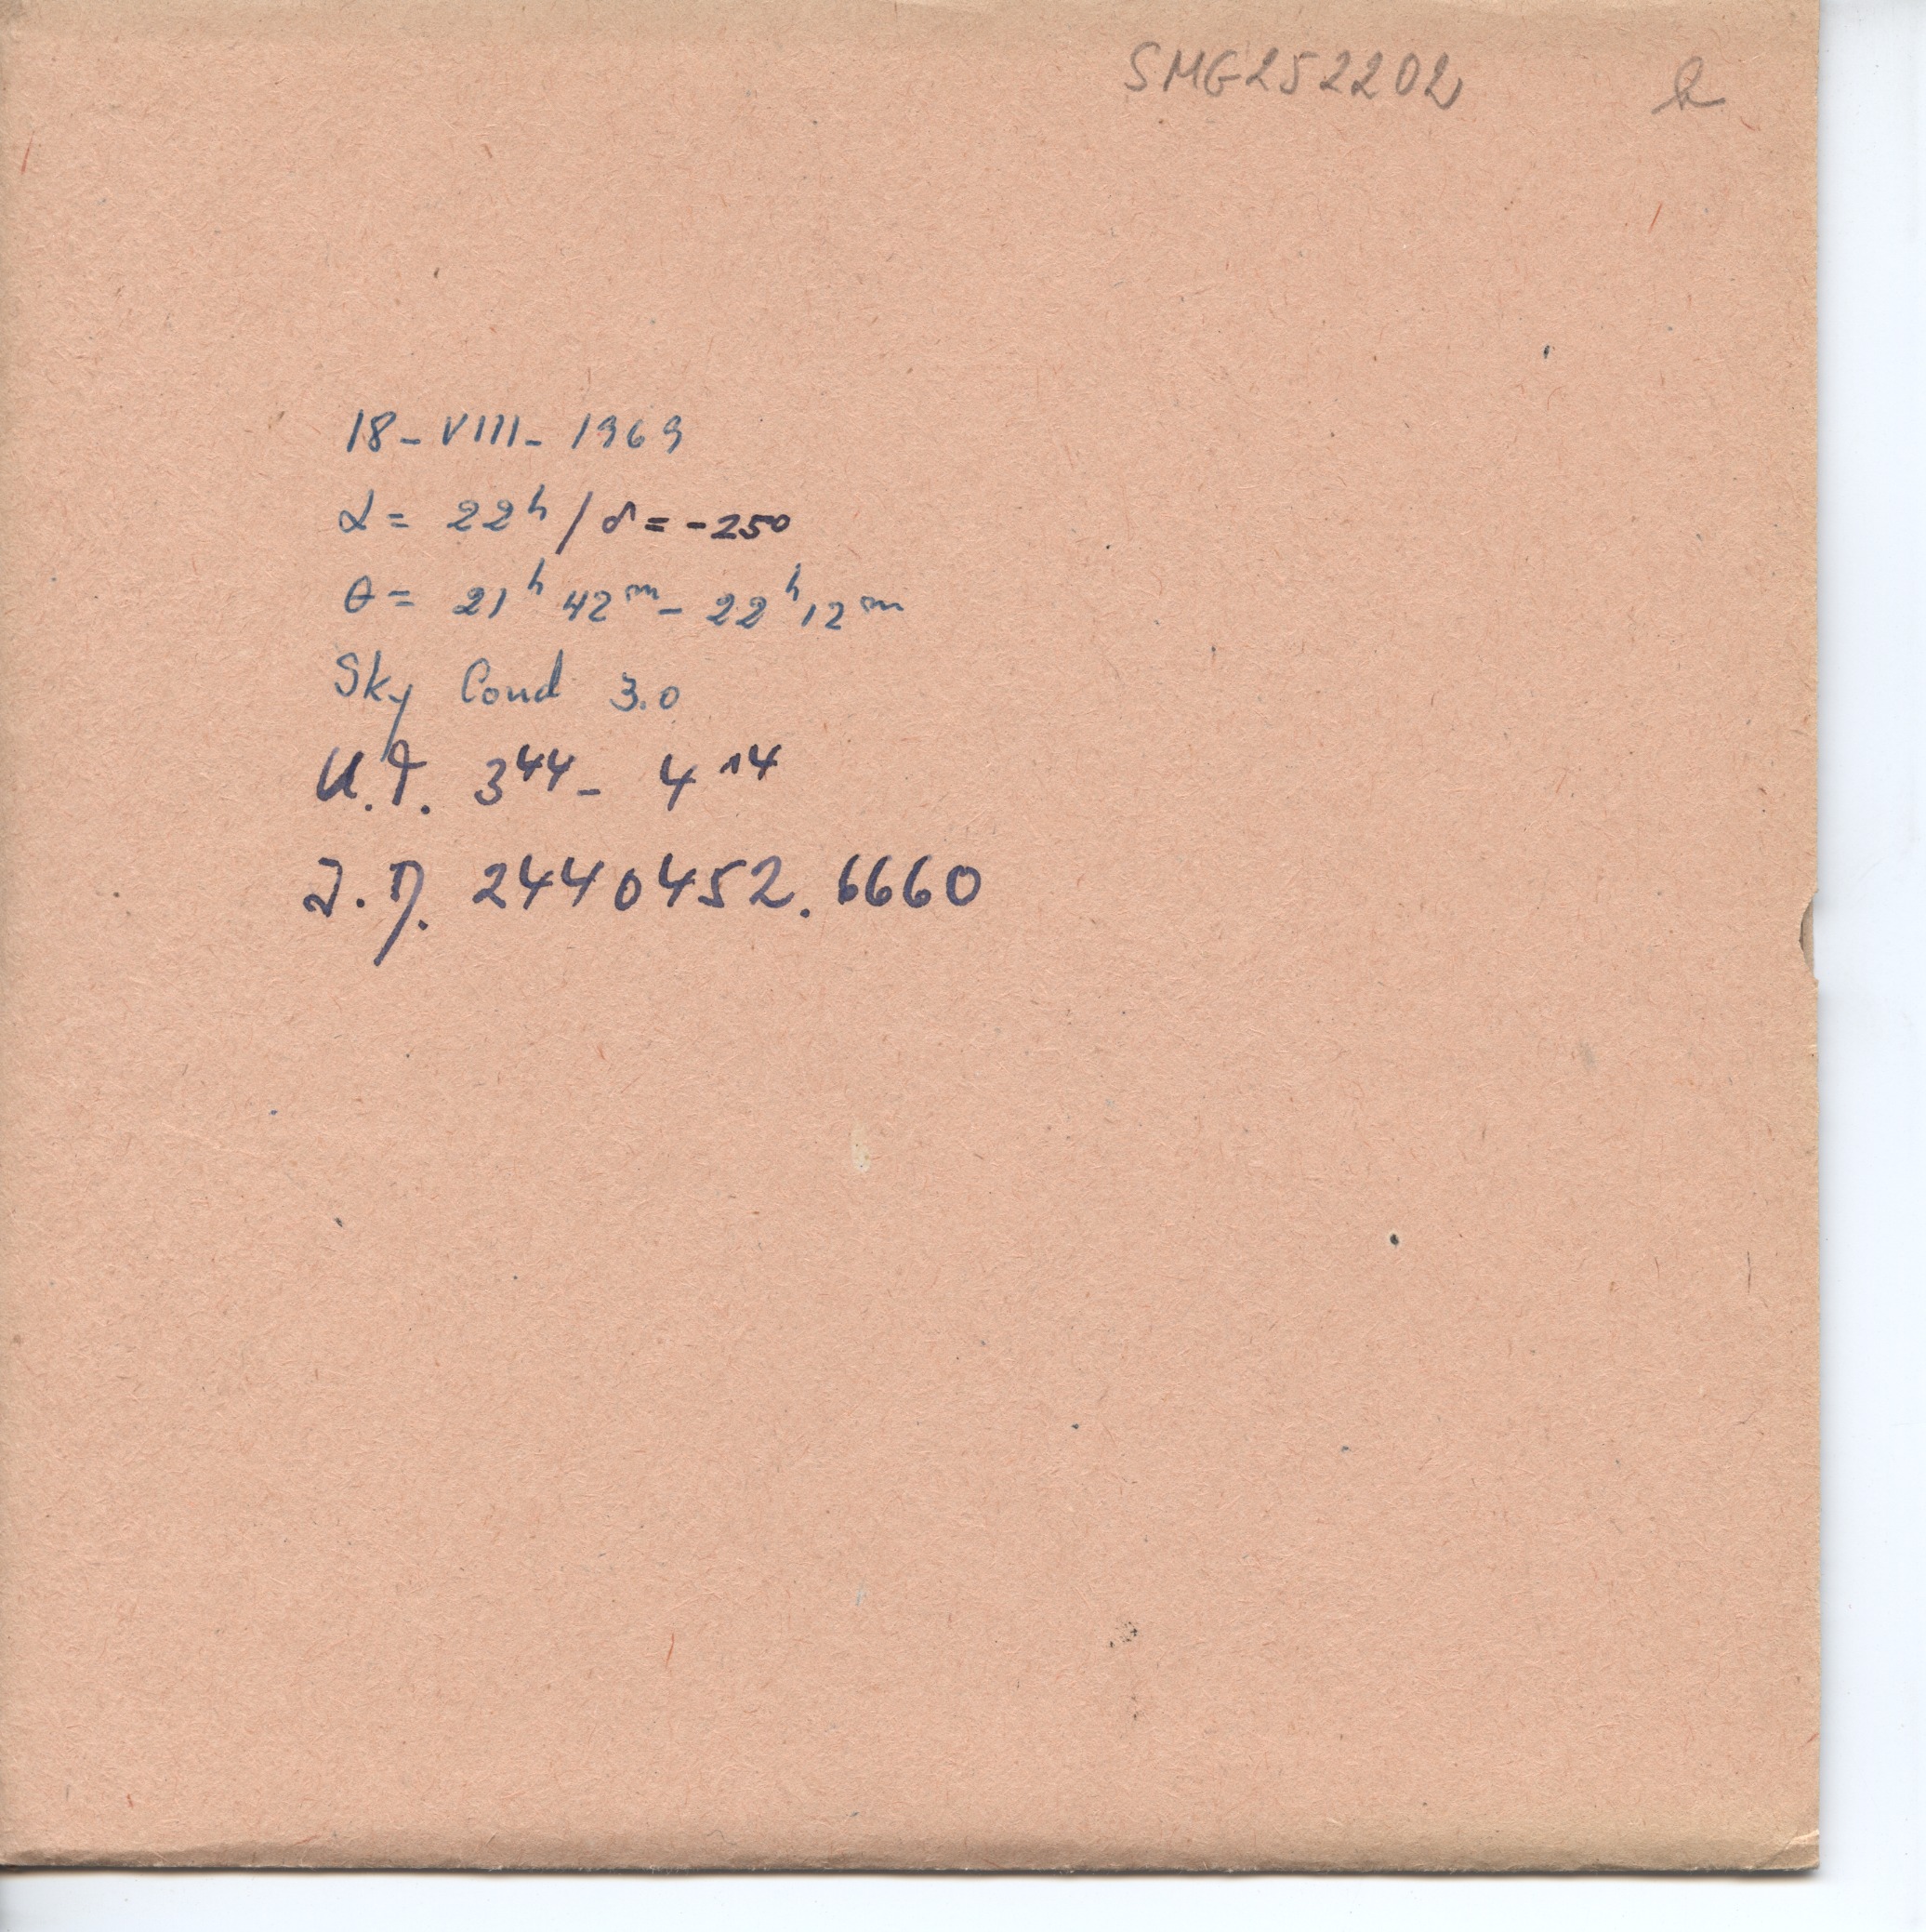 SMG252202
18-VIII-1969
α = 22ʰ / δ = -25°
θ = 21ʰ 42ᵐ - 22ʰ 12ᵐ
Sky Cond 3.0
U.T. 3⁴⁴ - 4¹⁴
J.D. 2440452.6660